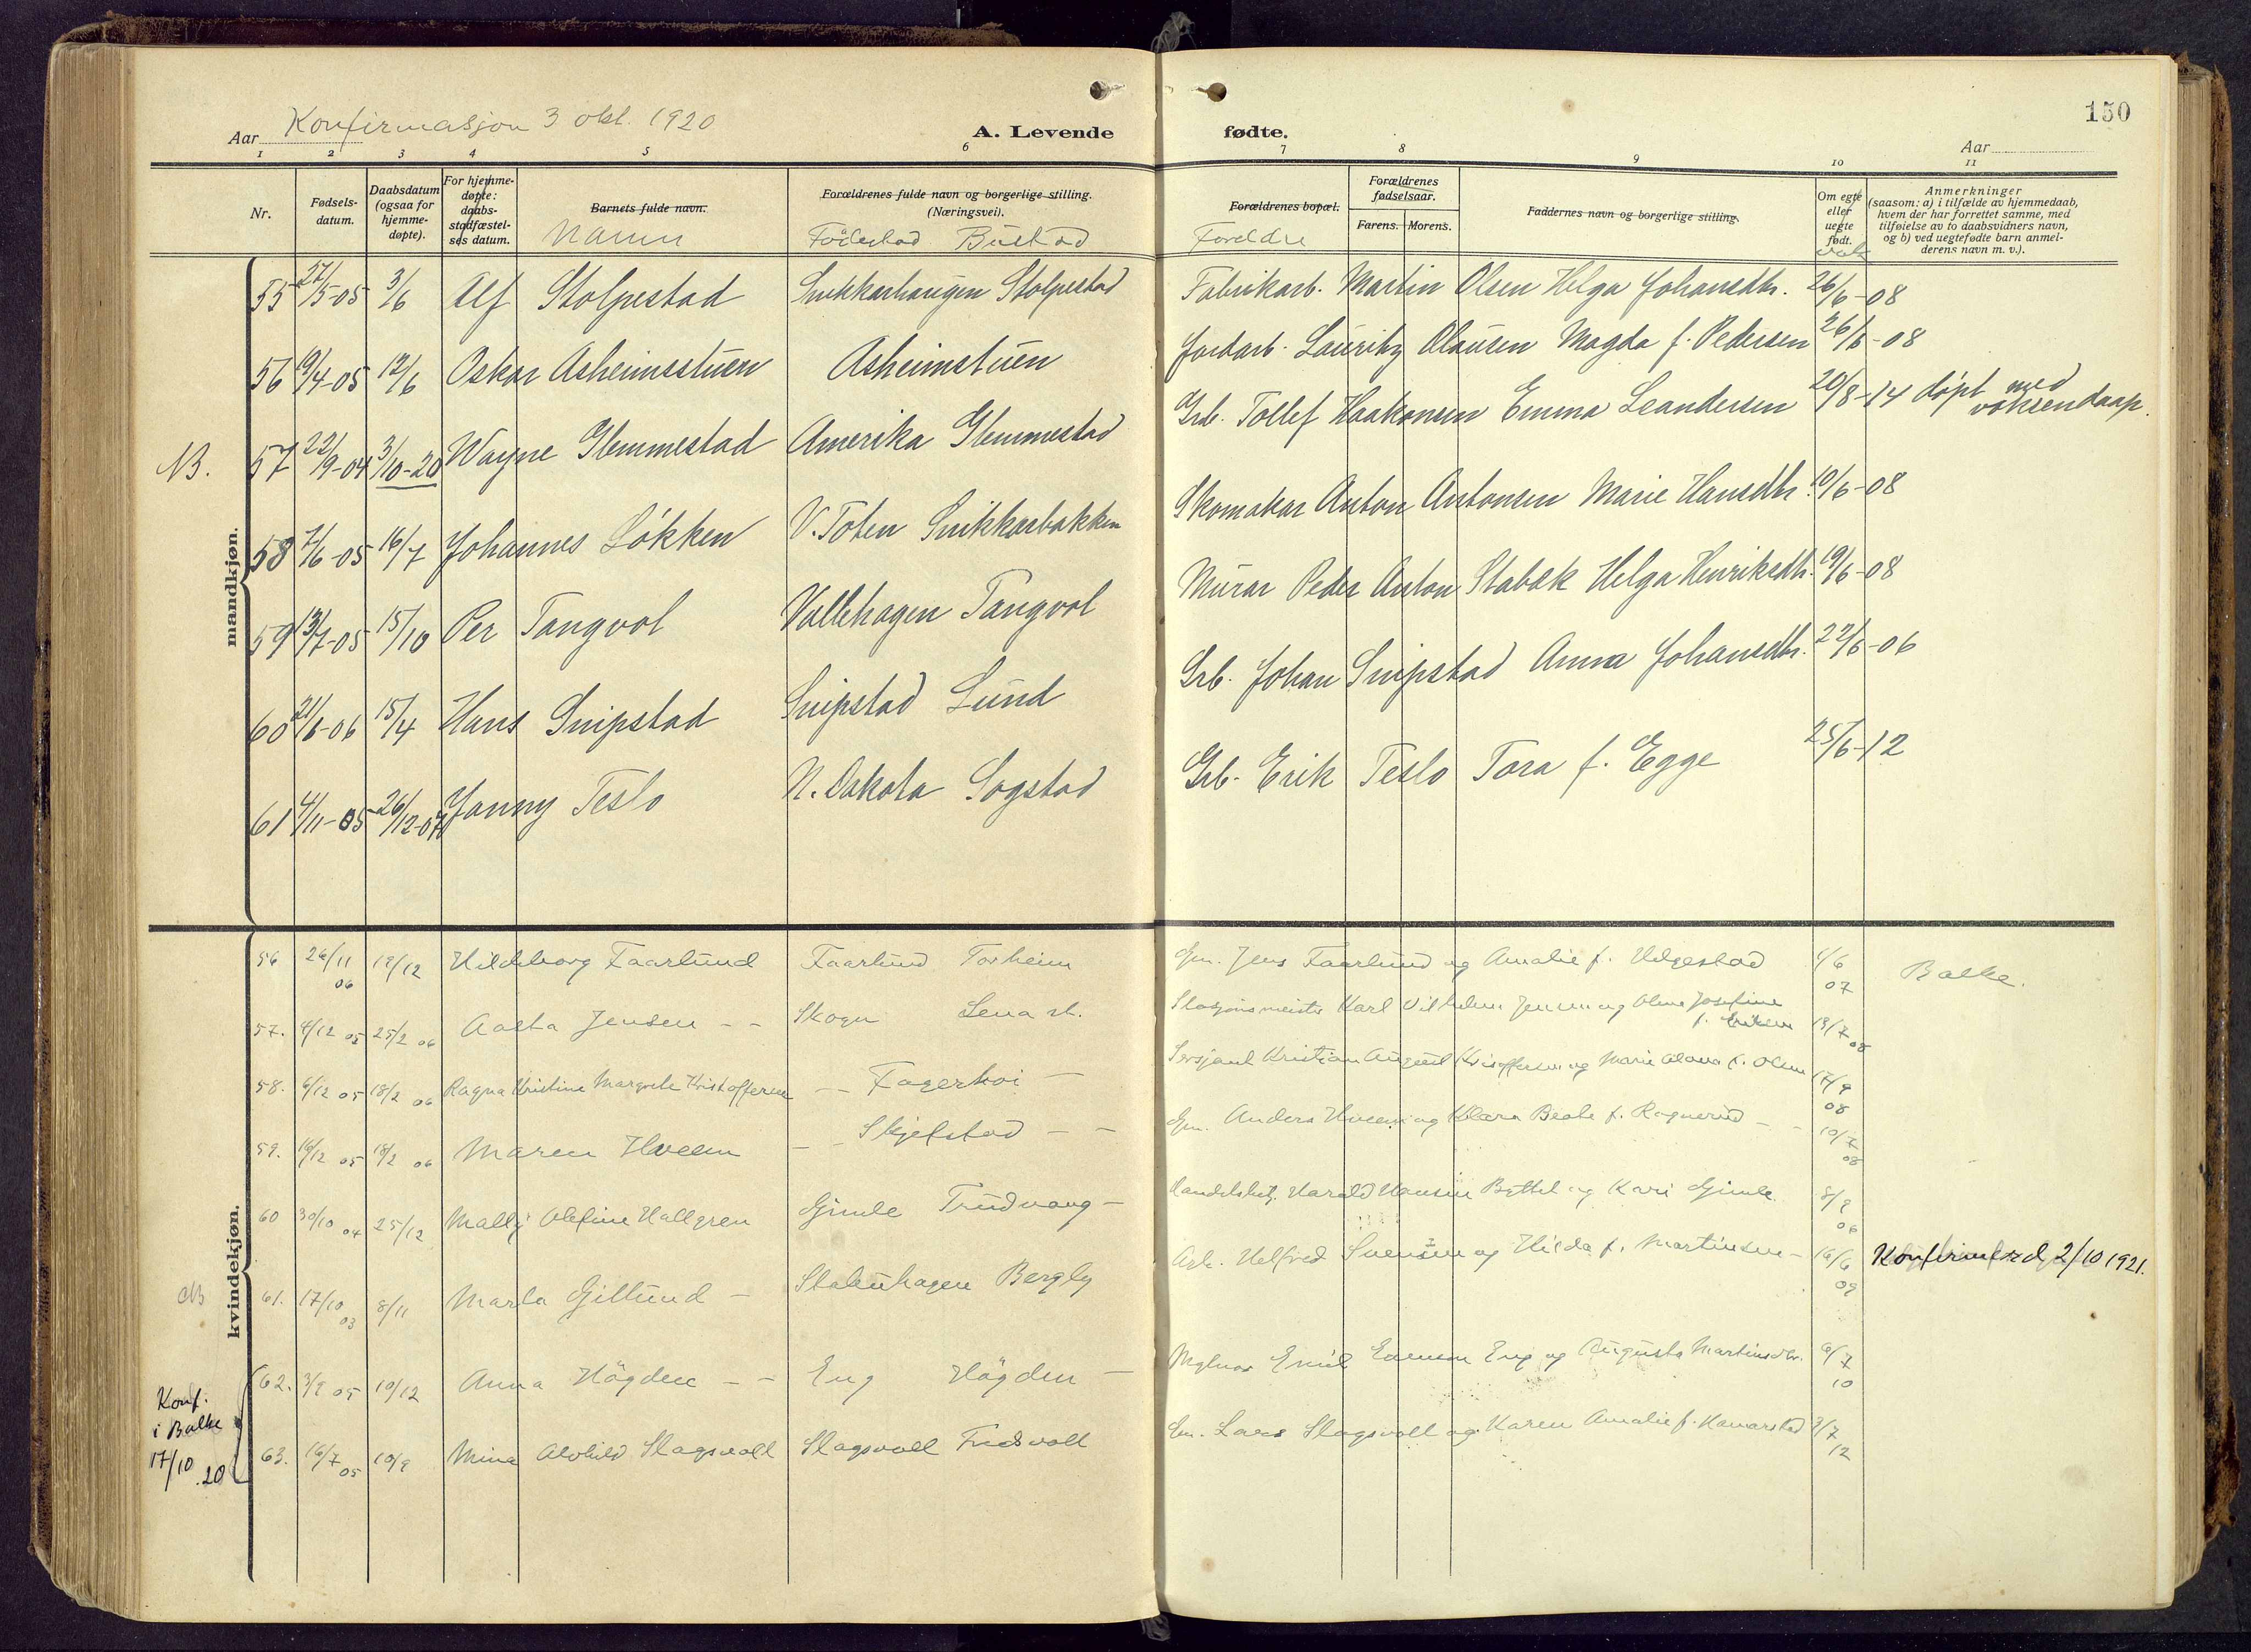 Aar Konfirmasjon 3 okt. 1920
A. Levende fødte.
150
Aar
1 2 3 4 5 6 7 8 9 10 11
Nr.
Fødsels-
datum.
Daabsdatum
(ogsaa for
hjemme-
døpte).
For hjemme-
døpte:
daabs-
stadfæstel-
ses datum.
Barnets fulde navn.
Namn
Forældrenes fulde navn og borgerlige stilling.
(Næringsvei).
Födestad Bustad
Forældrenes bopæl.
Foreldre
Forældrenes
fødselsaar.
Farens. Morens.
Faddernes navn og borgerlige stilling.
Om egte
eller
uegte
født.
Anmerkninger
(saasom: a) i tilfælde av hjemmedaab,
hvem der har forrettet samme, med
tilføielse av to daabsvidners navn,
og b) ved uegtefødte barn anmel-
derens navn m. v.).
mandkjøn.
55 27/5-05 3/6 Alf Stolpestad Snikkarhaugen Stolpestad Fabrikarb. Martin Olsen Helga Johansdtr. 26/6-08
56 19/4-05 12/6 Oskar Asheimsstuen Asheimstuen Jordarb. Lauritz Olausen Magda f. Pedersen 26/6-08
NB. 57 22/9-04 3/10-20 Wayne Glemmestad Amerika Glemmestad Grb. Tollef Haakonsen Emma Leandersen 20/8-14 döpt med
voksendaap.
58 7/6-05 16/7 Johannes Løkken V. Toten Snikkarbakken Skomakar Anton Antonsen Marie Hansdtr. 10/6-08
59 13/7-05 15/10 Per Tangvol Vallehagen Tangvol Murar Peder Anton Stabæk Helga Henriksdtr. 19/6-08
60 21/1-06 15/4 Hans Snipstad Snipstad Lund Grb. Johan Snipstad Anna Johansdtr. 22/6-06
61 4/11-05 26/12-07 Jonny Teslo N. Dakota Sogstad Grb. Erik Teslo Tora f. Egge 25/6-12
kvindekjøn.
56 26/11 06 19/12 Hildeborg Faarlund Faarlund Torheim Gm. Jens Faarlund og Amalie f. Helgestad 4/6 07 Balke.
57. 4/12 05 25/2 06 Aasta Jensen - - Skogn Lena st. Stasjonsmeister Karl Vilhelm Jensen og Olene Josefine
f. Eriksen 19/7 08
58. 6/12 05 18/2 06 Ragna Kristine Margrete Kristoffersen — Fagerhoi — Sersjant Kristian August Kristoffersen og Marie f. Olsen 17/9 08
59. 16/12 05 18/2 06 Maren Hveem — - Skjelstad - - Gm. Anders Hveem og Klara Beate f. Rognerud - - 10/7 08
60 30/10 04 25/12 Mally Olefine Hallgren Gimle Trudvang - Handelsbetj. Harald Hansen Bøttel og Kari Gimle 8/9 06
NB 61. 17/10 03 8/11 Marta Gillund - Stabuhagen Bergly Arb. Helfred Svensen og Hilda f. Martinsen - 16/6 09 Konfirmerd 2/10 1921.
Konf.
i Balke
17/10 .20
62. 3/9 05 10/12 Anna Högden - - Eng Högden - Mylnar Emil Evensen Eng og Augusta Martinsdtr. 6/7 10
63. 16/7 05 10/9 Mina Alvhild Slagsvoll Slagsvoll Fredsvoll Gm. Lars Slagsvoll og Karen Amalie f. Hanarstad 3/7 12